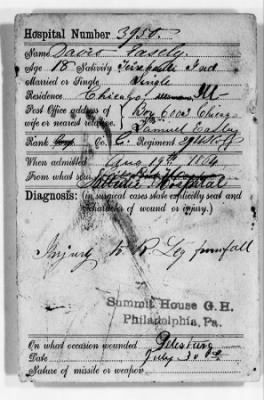 Hospital Number 3950.
Name Davis
Age 18 Nativity Ind
Married or Single Single
Residence Chicago Ill
Post Office address of Box Chicago
wife or nearest relative. Samuel
Rank Co. C. Regiment 29th
When admitted Aug 19th 1864
From what source Hospital
Diagnosis: (in surgical cases state explicitly seat and
character of wound or injury.)
Injury to R Leg from fall
Summit House G. H.
Philadelphia, Pa.
On what occasion wounded Petersburg
Date July 30
Nature of missile or weapon